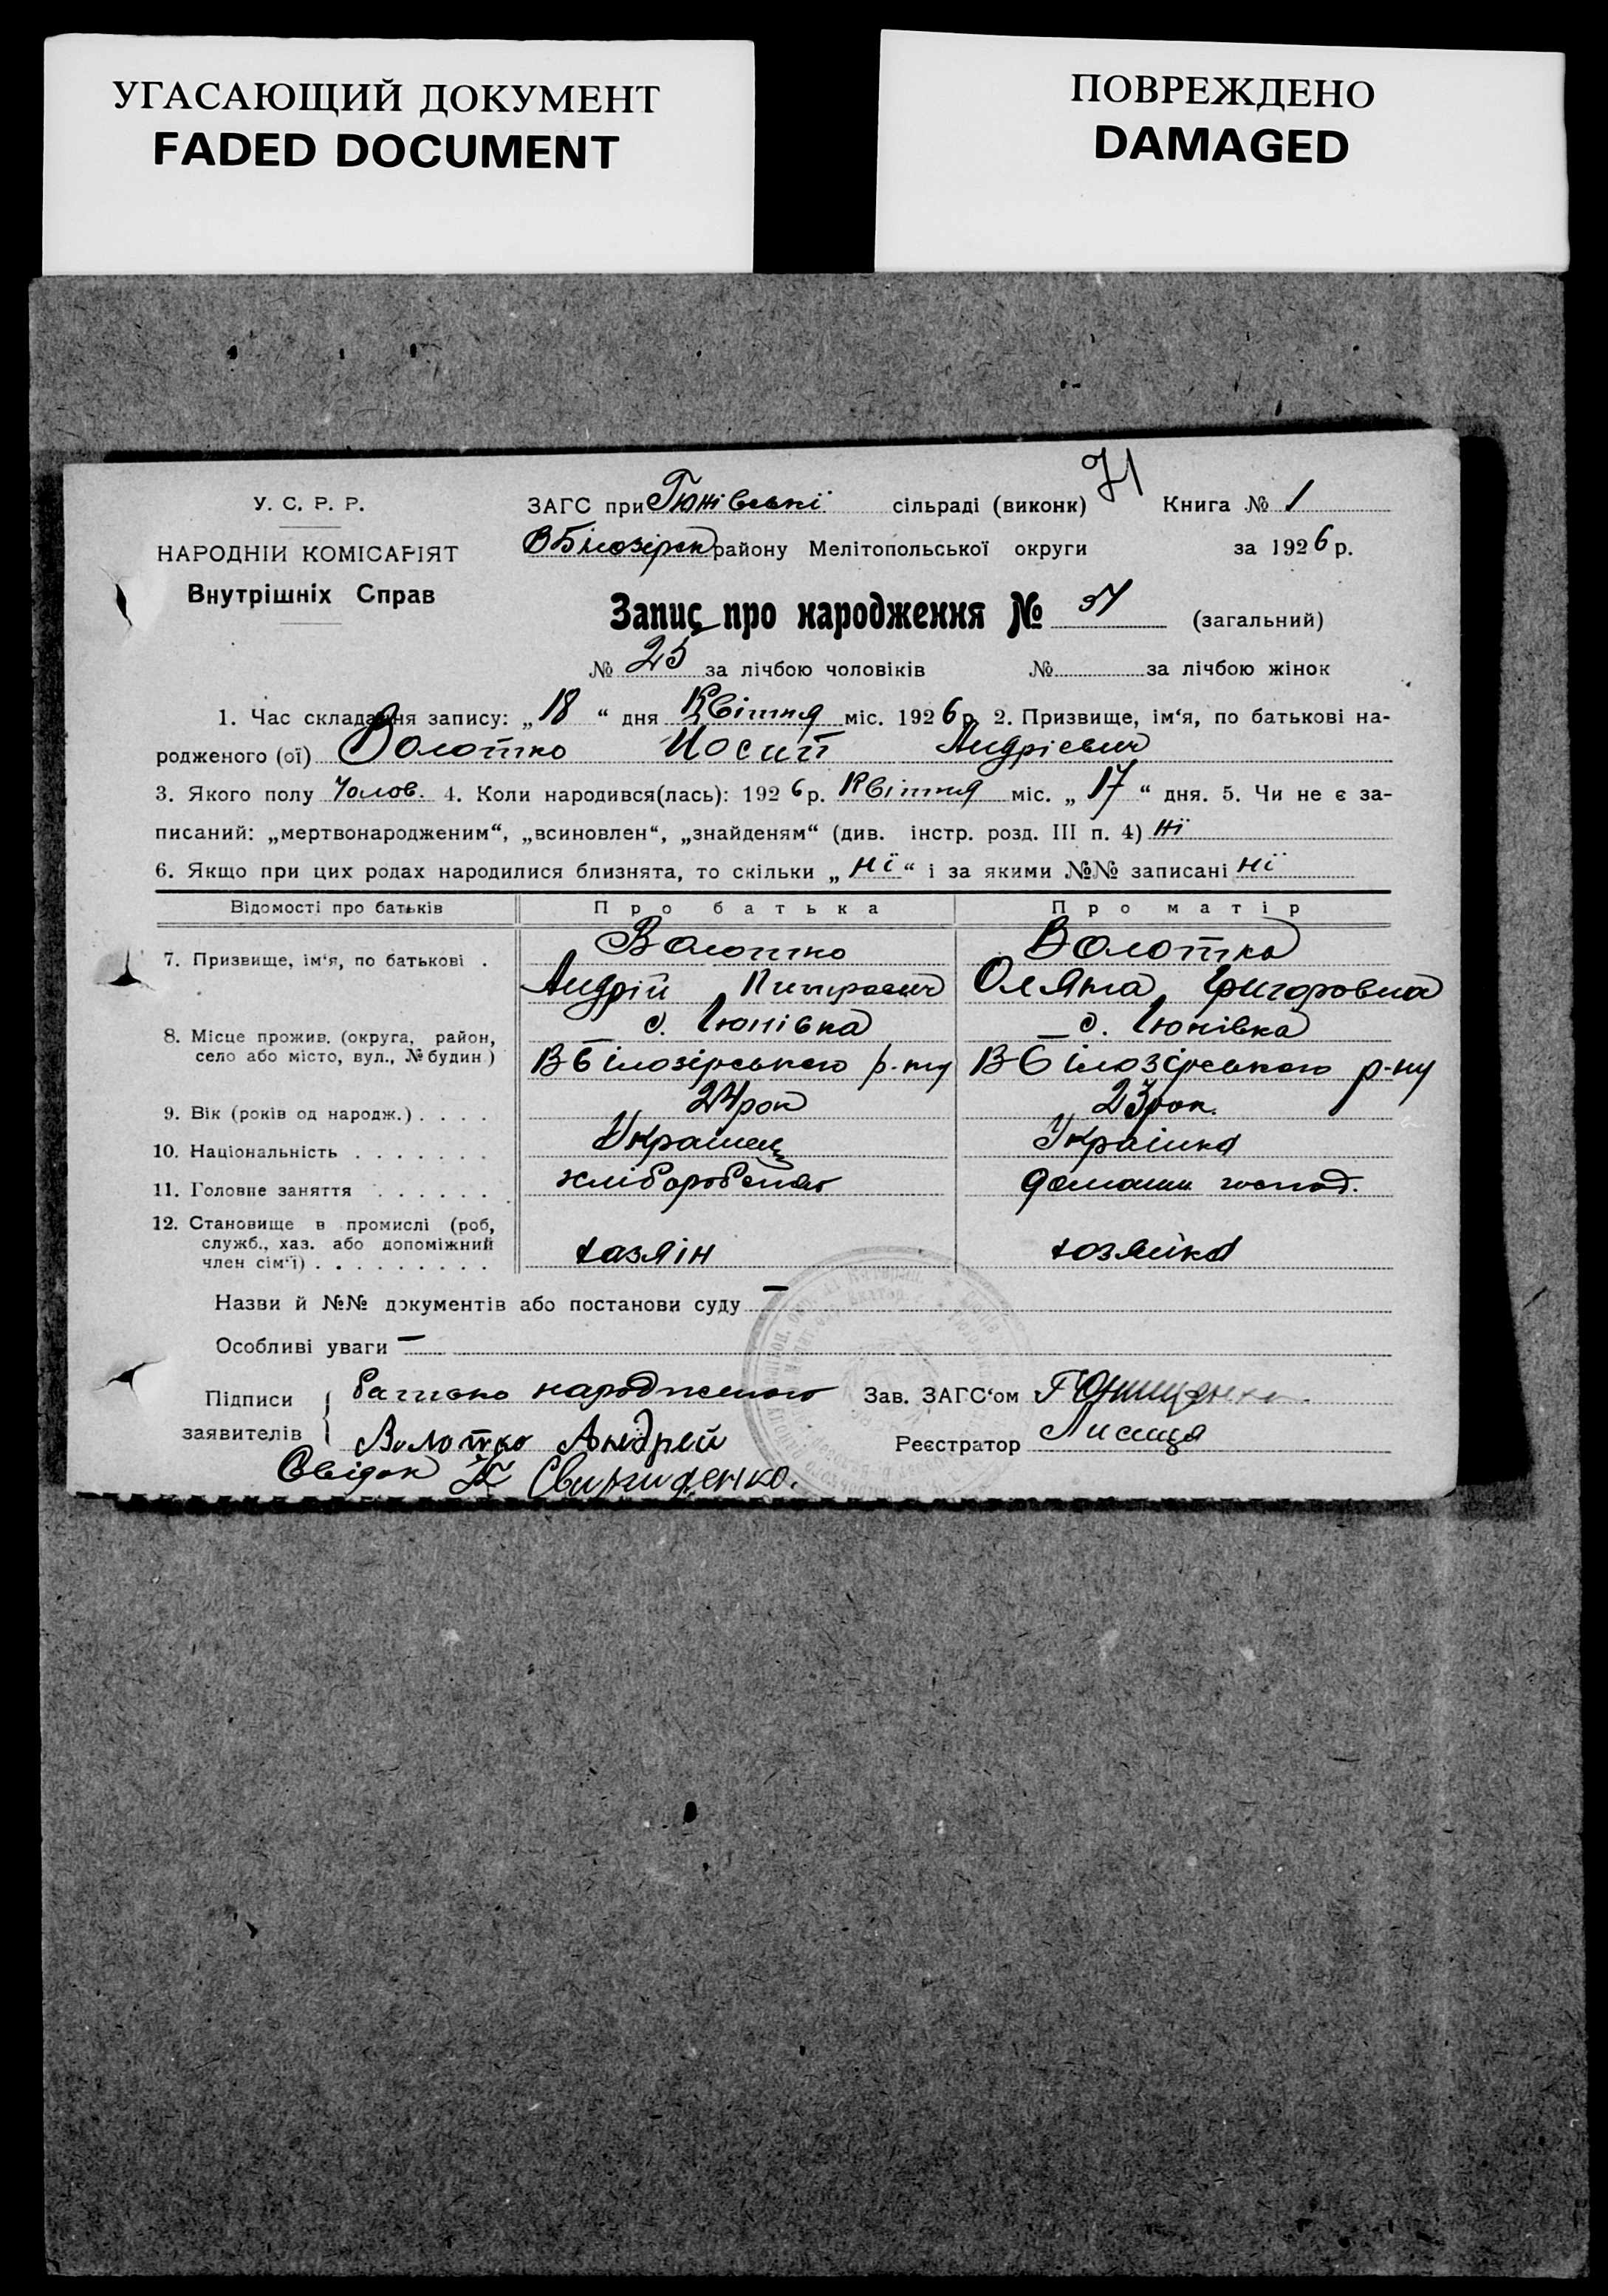 УГАСАЮЩИЙ ДОКУМЕНТ
FADED DOCUMENT
ПОВРЕЖДЕНО
DAMAGED
У. С. Р. Р.
НАРОДНІЙ КОМІСАРІЯТ
Внутрішніх Справ
ЗАГС при Гюнівські сільраді (виконк)
ВБілозірск району Мелітопольської округи
71
Книга № 1
за 1926 р.
Запис про народження № (загальний)
№ 25 за лічбою чоловіків № за лічбою жінок
1. Час складання запису: „18“ дня Квітня міс. 1926 р. 2. Призвище, ім‘я, по батькові на-
родженого (ої) Волотко Йосип Андрієвич
3. Якого полу Чолов. 4. Коли народився(лась): 1926 р. Квітня міс. „17“ дня. 5. Чи не є за-
писаний: „мертвонародженим“, „всиновлен“, „знайденям“ (див. інстр. розд. III п. 4) ні
6. Якщо при цих родах народилися близнята, то скільки „нї“ і за якими №№ записані нї
Відомості про батьків Про батька Про матір
7. Призвище, ім‘я, по батькові . Волотко Волотко
Андрій Оляна Григоровна
8. Місце прожив. (округа, район, село або місто, вул., № будин) с. Гюнівка с. Гюнівка
ВБілозірського р-ну ВБілозірського р-ну
9. Вік (років од народж.) . . . . 24 рок 23 рок.
10. Національність . . . . . . . Українець Українка
11. Головне заняття . . . . . . хліборобство домашн господ.
12. Становище в промислі (роб,
служб., хаз. або допоміжний
член сім‘ї) . . . . . . . . . хазяін хозяйка
Назви й №№ документів або постанови суду —
Особливі уваги —
Підписи заявителів батько народженого
Волотко Андрей
Свідок Свириденко.
Зав. ЗАГС‘ом
Реєстратор Лисиця